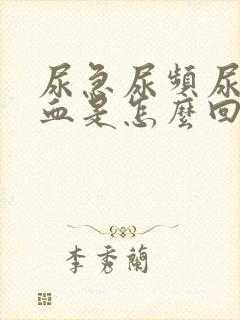 尿急尿頻尿
血是怎麼回
李秀蘭